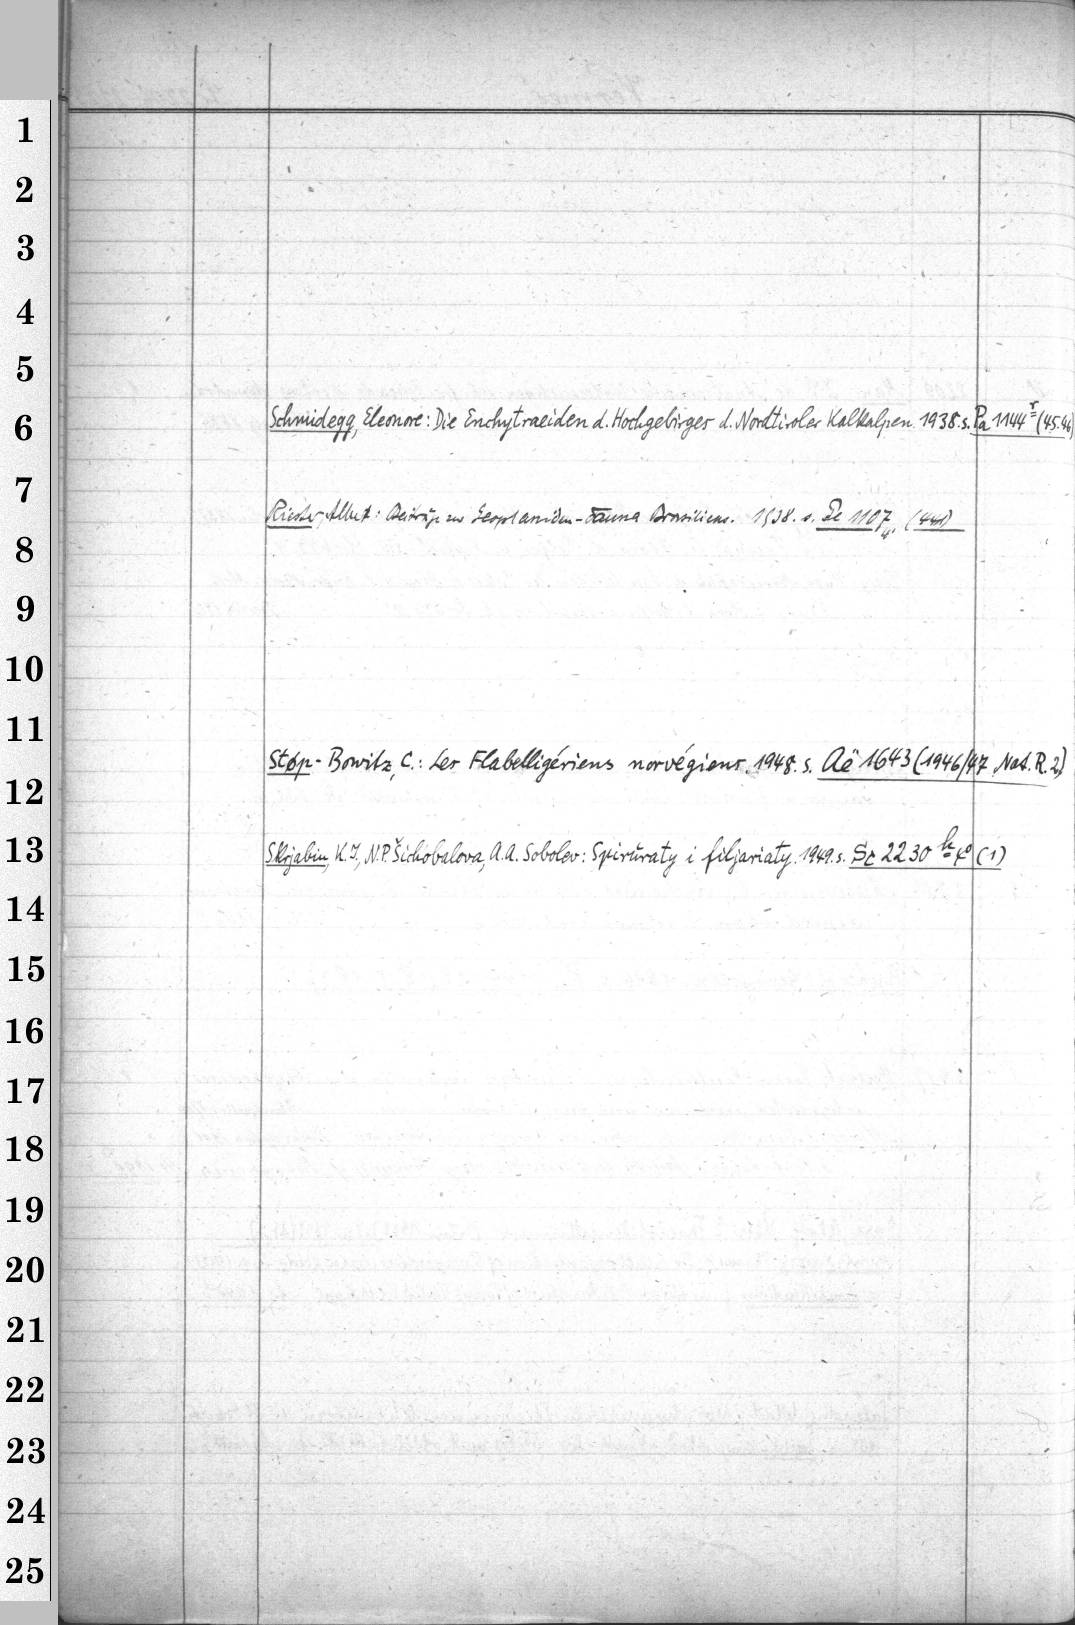 1
2
3
4
5
6
Schmidegg, Eleonore: Die Enchytraeiden d. Hochgebirges d. Nordtiroler Kalkalpen. 1938. s. Pa 1144 r (45.46)
7
Riester, Albert: Beiträge zur Geoplaniden-Fauna Brasiliens. 1938. s. Pe 1107 4. (441)
8
9
10
11
Støp-Bowitz, C.: Les Flabelligériens norvégiens. 1948. s. Aë 1643 (1946/47 Nat. R. 2)
12
13
Skrjabin, K. I., N. P. Šichobalova, A. A. Sobolev: Spiruraty i filjariaty. 1949. s. Sc 2230 k 4° (1)
14
15
16
17
18
19
20
21
22
23
24
25